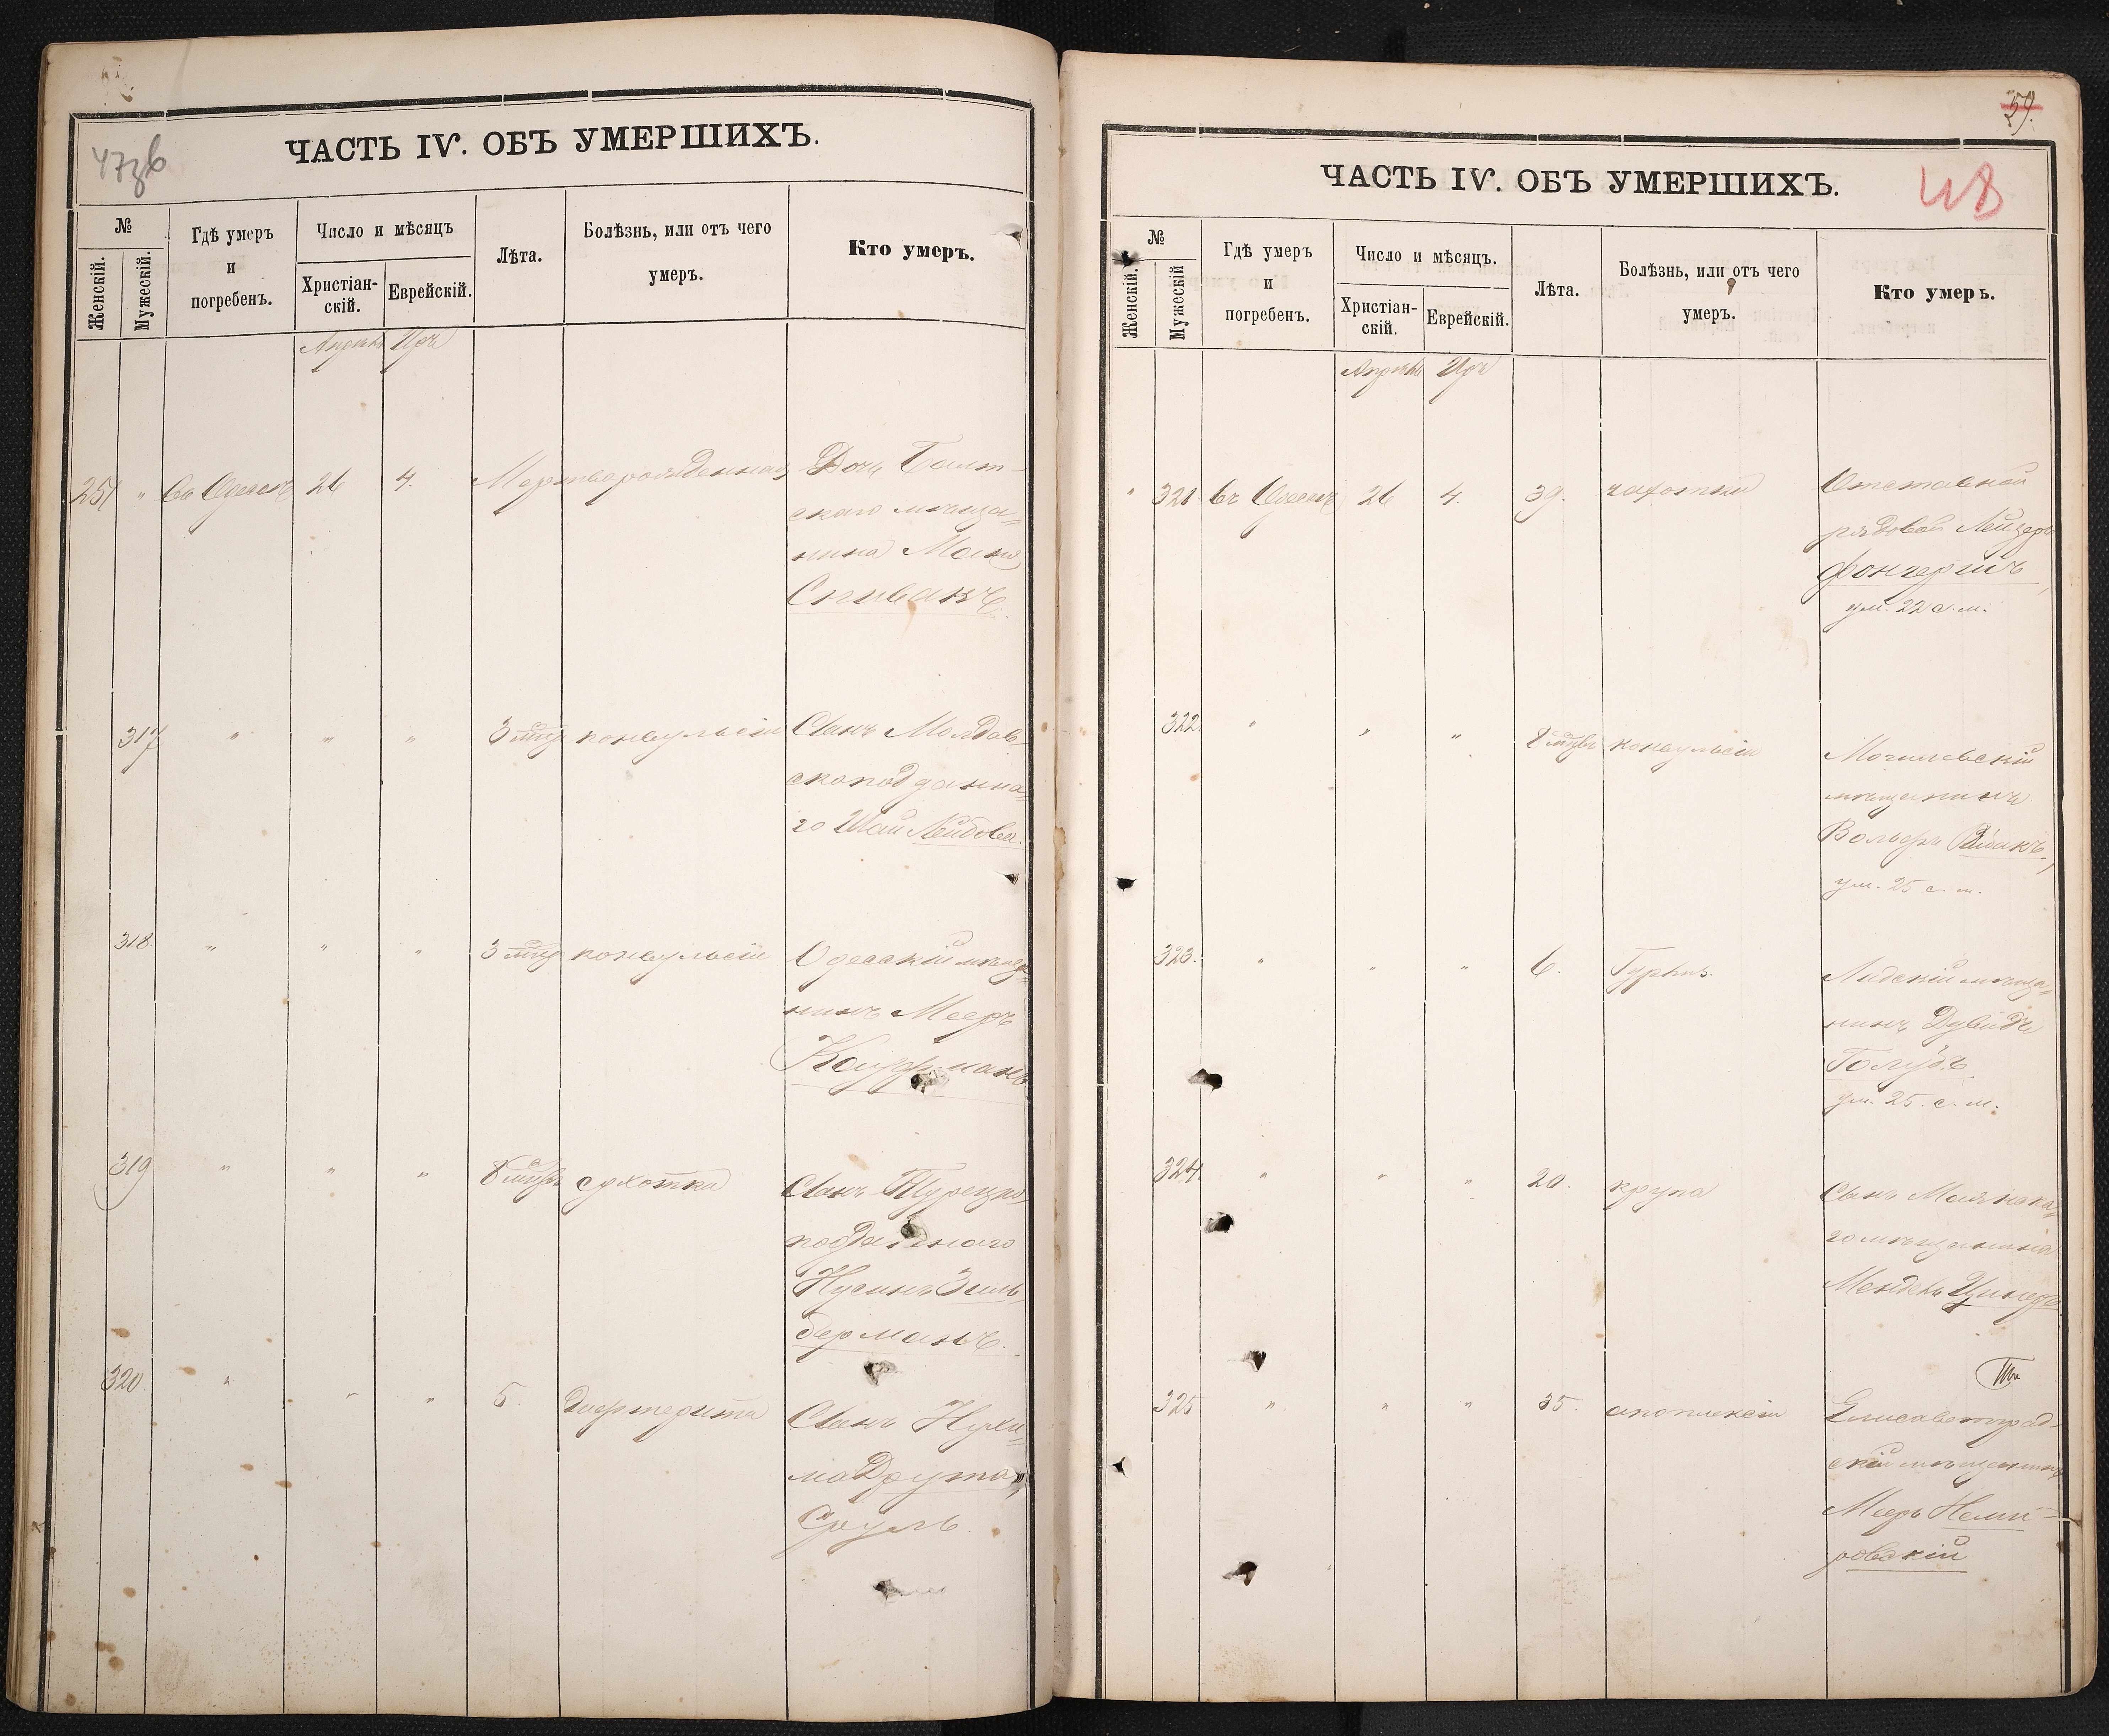 47 зв
ЧАСТЬ IV. ОБЪ УМЕРШИХЪ.
№
Женскій.
Мужескій.
Гдѣ умеръ
и
погребенъ.
Число и мѣсяцъ
Христіан-
скій.
Еврейскій.
Лѣта.
Болѣзнь, или отъ чего
умеръ.
Кто умеръ.
Апрѣль Иръ
251 " Въ Одессѣ 26 4. Мертворожденная Дочь Балт-
скаго мѣща=
нина
Спивакъ
317 " " " 3 конвульсіи Сынъ Молдав-
скоподданна=
го Шаи Лейбова.
318. " " " 3 конвульсіи Одесскій мѣща=
нинъ Мееръ
Кауфманъ
319 " " " 8 сухотка Сынъ Турецко-
подданнаго
Нусинъ Зиль-
берманъ.
320 " " " 5. дифтерита Сынъ Нухи=
ма Друта,
Сруль
59.
48
ЧАСТЬ IV. ОБЪ УМЕРШИХЪ.
№
Женскій.
Мужескій
Гдѣ умеръ
и
погребенъ.
Число и мѣсяцъ.
Христіан-
скій.
Еврейскій.
Лѣта.
Болѣзнь, или отъ чего
умеръ.
Кто умеръ.
Апрѣль Иръ
" 321 въ Одессѣ 26 4. 39. чахотки Отставной
рядовой Лейзеръ
ум. 22 с. м.
322. " " " 8 конвульсіи Могилевскій
мѣщанинъ
Вольфъ
ум. 25 с. м.
323. " " " 6. Лидскій мѣща=
нинъ Дувидъ
Голубъ
ум. 25. с. м.
324. " " " 20. крупа Сынъ
го мѣщанина
Мендель
325 " " " 35. апоплексіи Елисаветград-
скій мѣщанинъ
Мееръ Неми-
ровскій